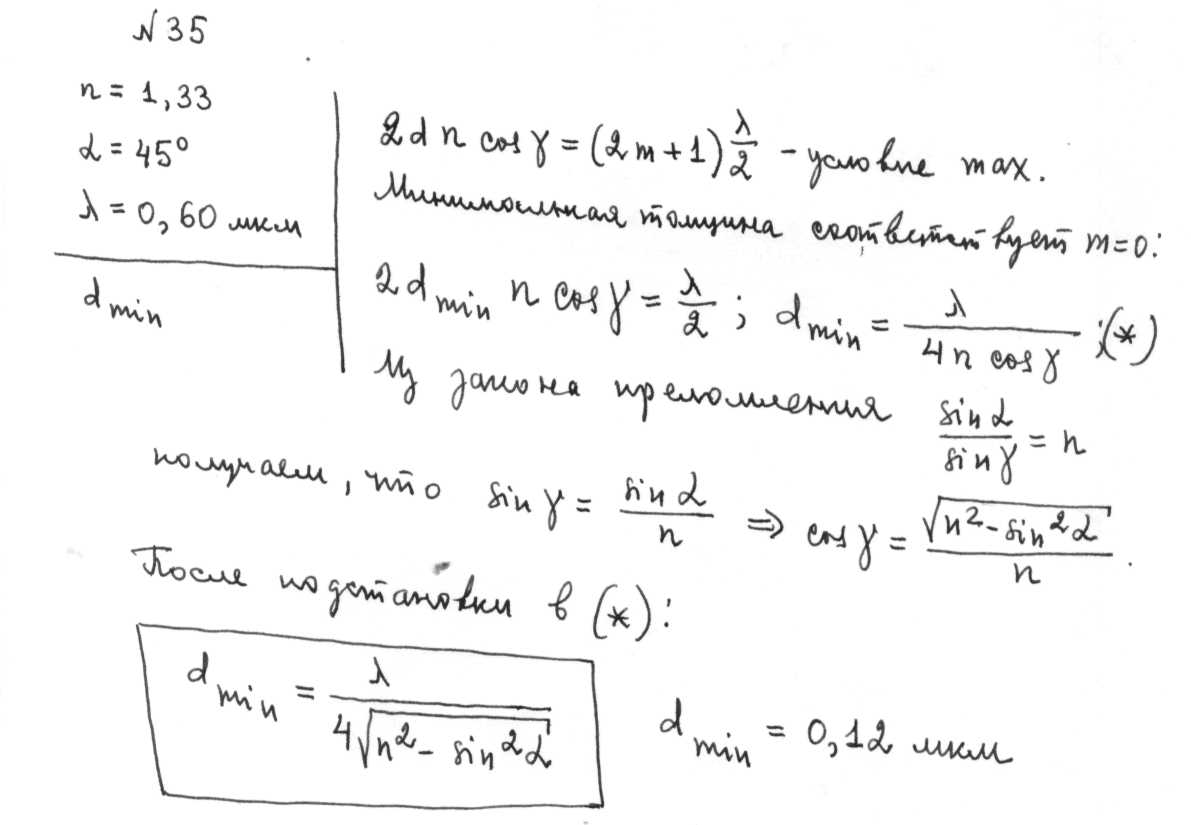 N 35
n = 1,33
α = 45°
λ = 0,60 мкм
d min
2 d n cos γ = (2m + 1) λ/2 - условие max.
Минимальная толщина соответствует m=0:
2 d min n cos γ = λ/2 ; d min = λ / (4 n cos γ) ; (*)
Из закона преломления sin α / sin γ = n
получаем, что sin γ = sin α / n ⇒ cos γ = √(n² - sin² α) / n .
После подстановки в (*):
d min = λ / (4√(n² - sin² α))
d min = 0,12 мкм